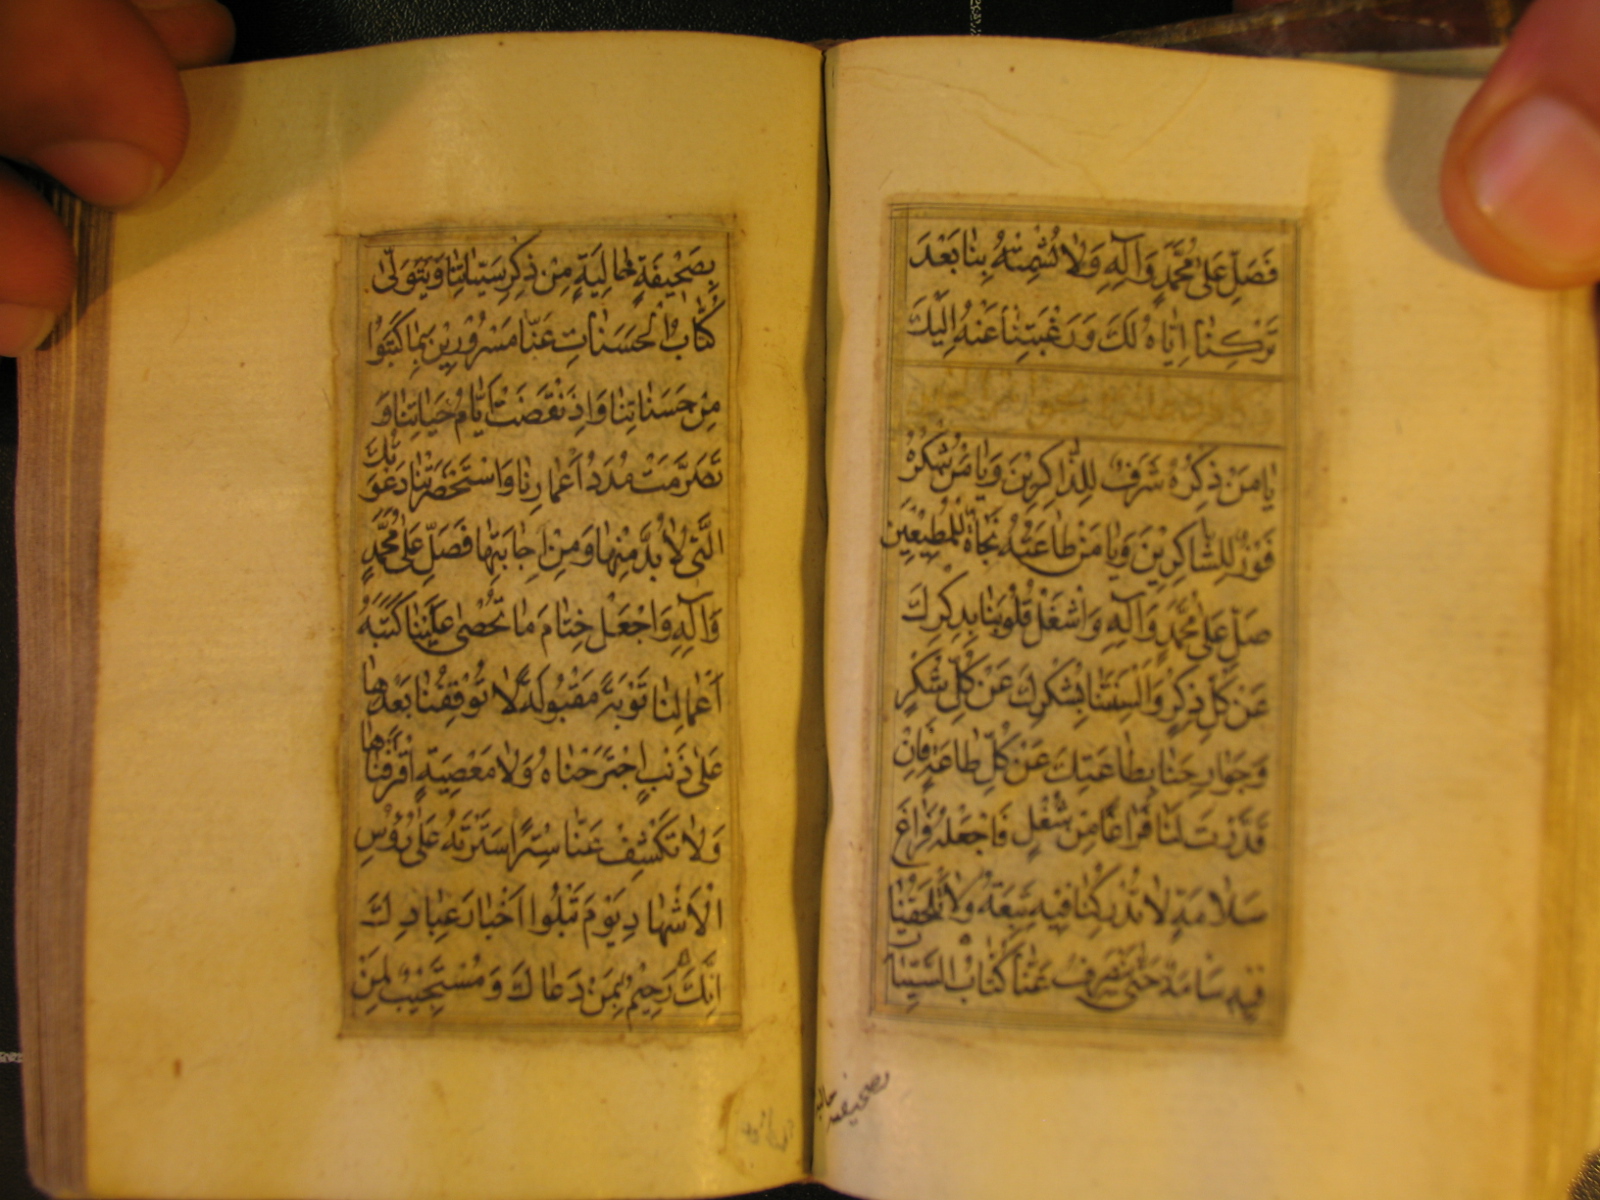 فَصَلِّ عَلىٰ مُحَمَّدٍ وَآلِهِ وَلٰا تُشْمِتْهُ بِنٰا بَعْدَ
تَرْكِنٰا اِيّٰاهُ لَكَ وَرَغْبَتِنٰا عَنْهُ اِلَيْكَ
يٰا مَنْ ذِكْرُهُ شَرَفٌ لِلذّٰاكِرِيْنَ وَيٰا مَنْ شُكْرُهُ
فَوْزٌ لِلشّٰاكِرِيْنَ وَيٰا مَنْ طٰاعَتُهُ نَجٰاةٌ لِلْمُطِيْعِيْنَ
صَلِّ عَلىٰ مُحَمَّدٍ وَآلِهِ وَاشْغَلْ قُلُوْبَنٰا بِذِكْرِكَ
عَنْ كُلِّ ذِكْرٍ وَاَلْسِنَتَنٰا بِشُكْرِكَ عَنْ كُلِّ شُكْرٍ
وَجَوٰارِحَنٰا بِطٰاعَتِكَ عَنْ كُلِّ طٰاعَةٍ فَاِنْ
قَدَّرْتَ لَنٰا فَرٰاغًا مِنْ شُغْلٍ فَاجْعَلْهُ فَرٰاغَ
سَلٰامَةٍ لٰا تُدْرِكُنٰا فِيْهِ تَبِعَةٌ وَلٰا تَلْحَقُنٰا
فِيْهِ سَٰامَةٌ حَتّٰى يَنْصَرِفَ عَنّٰا كُتّٰابُ السَّيِّئٰاتِ
بِصَحِيْفَةٍ خٰالِيَةٍ مِنْ ذِكْرِ سَيِّئٰاتِنٰا وَيَتَوَلّٰى
كُتّٰابُ الْحَسَنٰاتِ عَنّٰا مَسْرُوْرِيْنَ بِمٰا كَتَبُوْا
مِنْ حَسَنٰاتِنٰا وَاِذَنْقَضَتْ اَيّٰامُ حَيٰاتِنٰا وَ
تَصَرَّمَتْ مُدَدُ اَعْمٰارِنٰا وَاسْتَحْضَرَتْنٰا دَعْوَتُكَ
الَّتِيْ لٰا بُدَّ مِنْهٰا وَمِنْ اِجٰابَتِهٰا فَصَلِّ عَلىٰ مُحَمَّدٍ
وَآلِهِ وَاجْعَلْ خِتٰامَ مٰا تُحْصِيْ عَلَيْنٰا كَتَبَةُ
اَعْمٰالِنٰا تَوْبَةً مَقْبُوْلَةً لٰا تُوْقِفُنٰا بَعْدَهٰا
عَلىٰ ذَنْبٍ اِجْتَرَحْنٰاهُ وَلٰا مَعْصِيَةٍ اقْتَرَفْنٰاهٰا
وَلٰا تَكْشِفْ عَنّٰا سِتْرًا سَتَرْتَهُ عَلىٰ رُؤُسِ
الْاَشْهٰادِ يَوْمَ تَبْلُوْا اَخْبٰارَ عِبٰادِكَ
اِنَّكَ رَحِيْمٌ بِمَنْ دَعٰاكَ وَمُسْتَجِيْبٌ لِمَنْ
بصحیفه خالیه